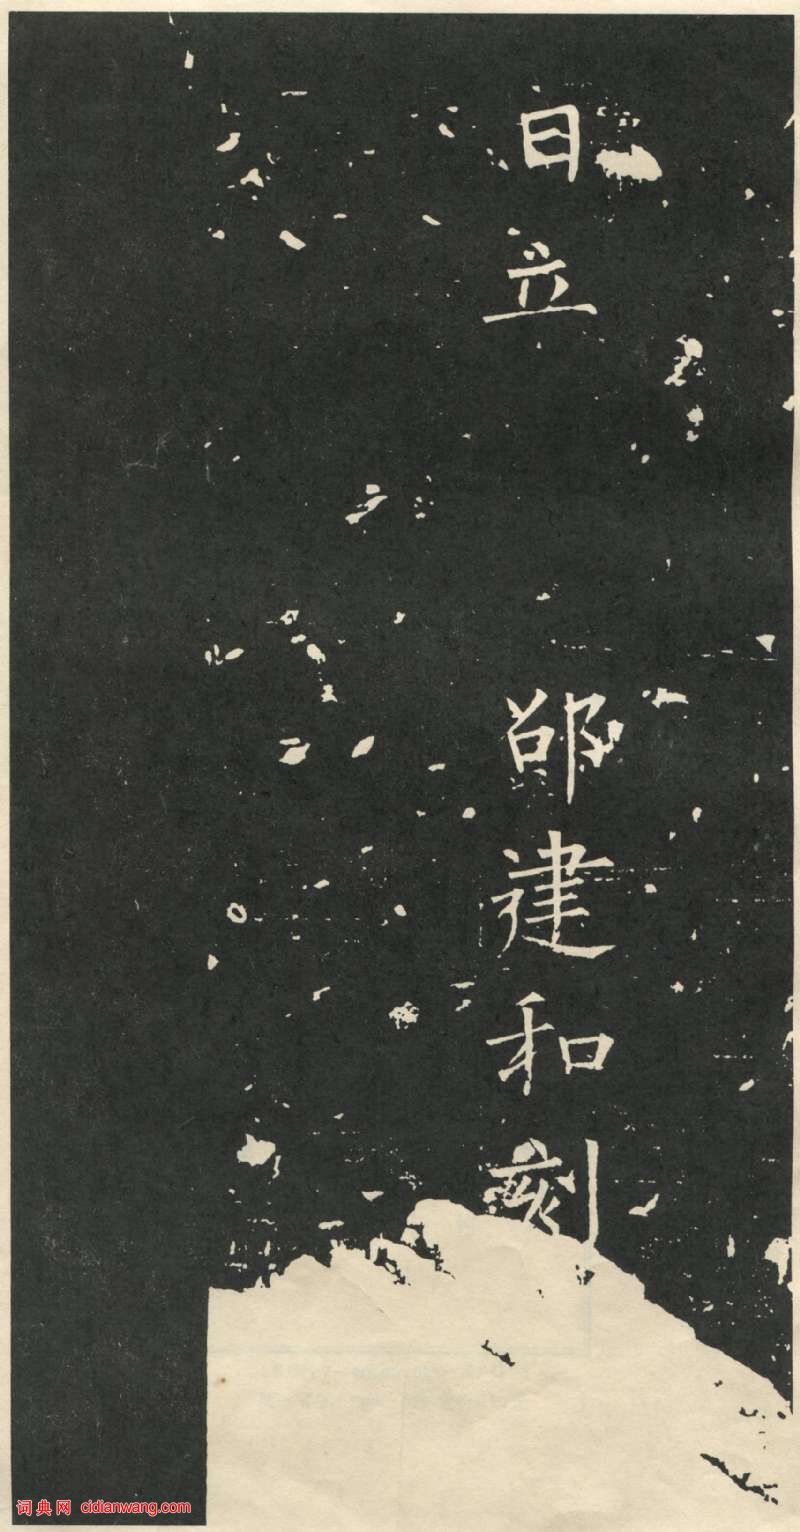 日立 邵建和刻
词典网 cidianwang.com